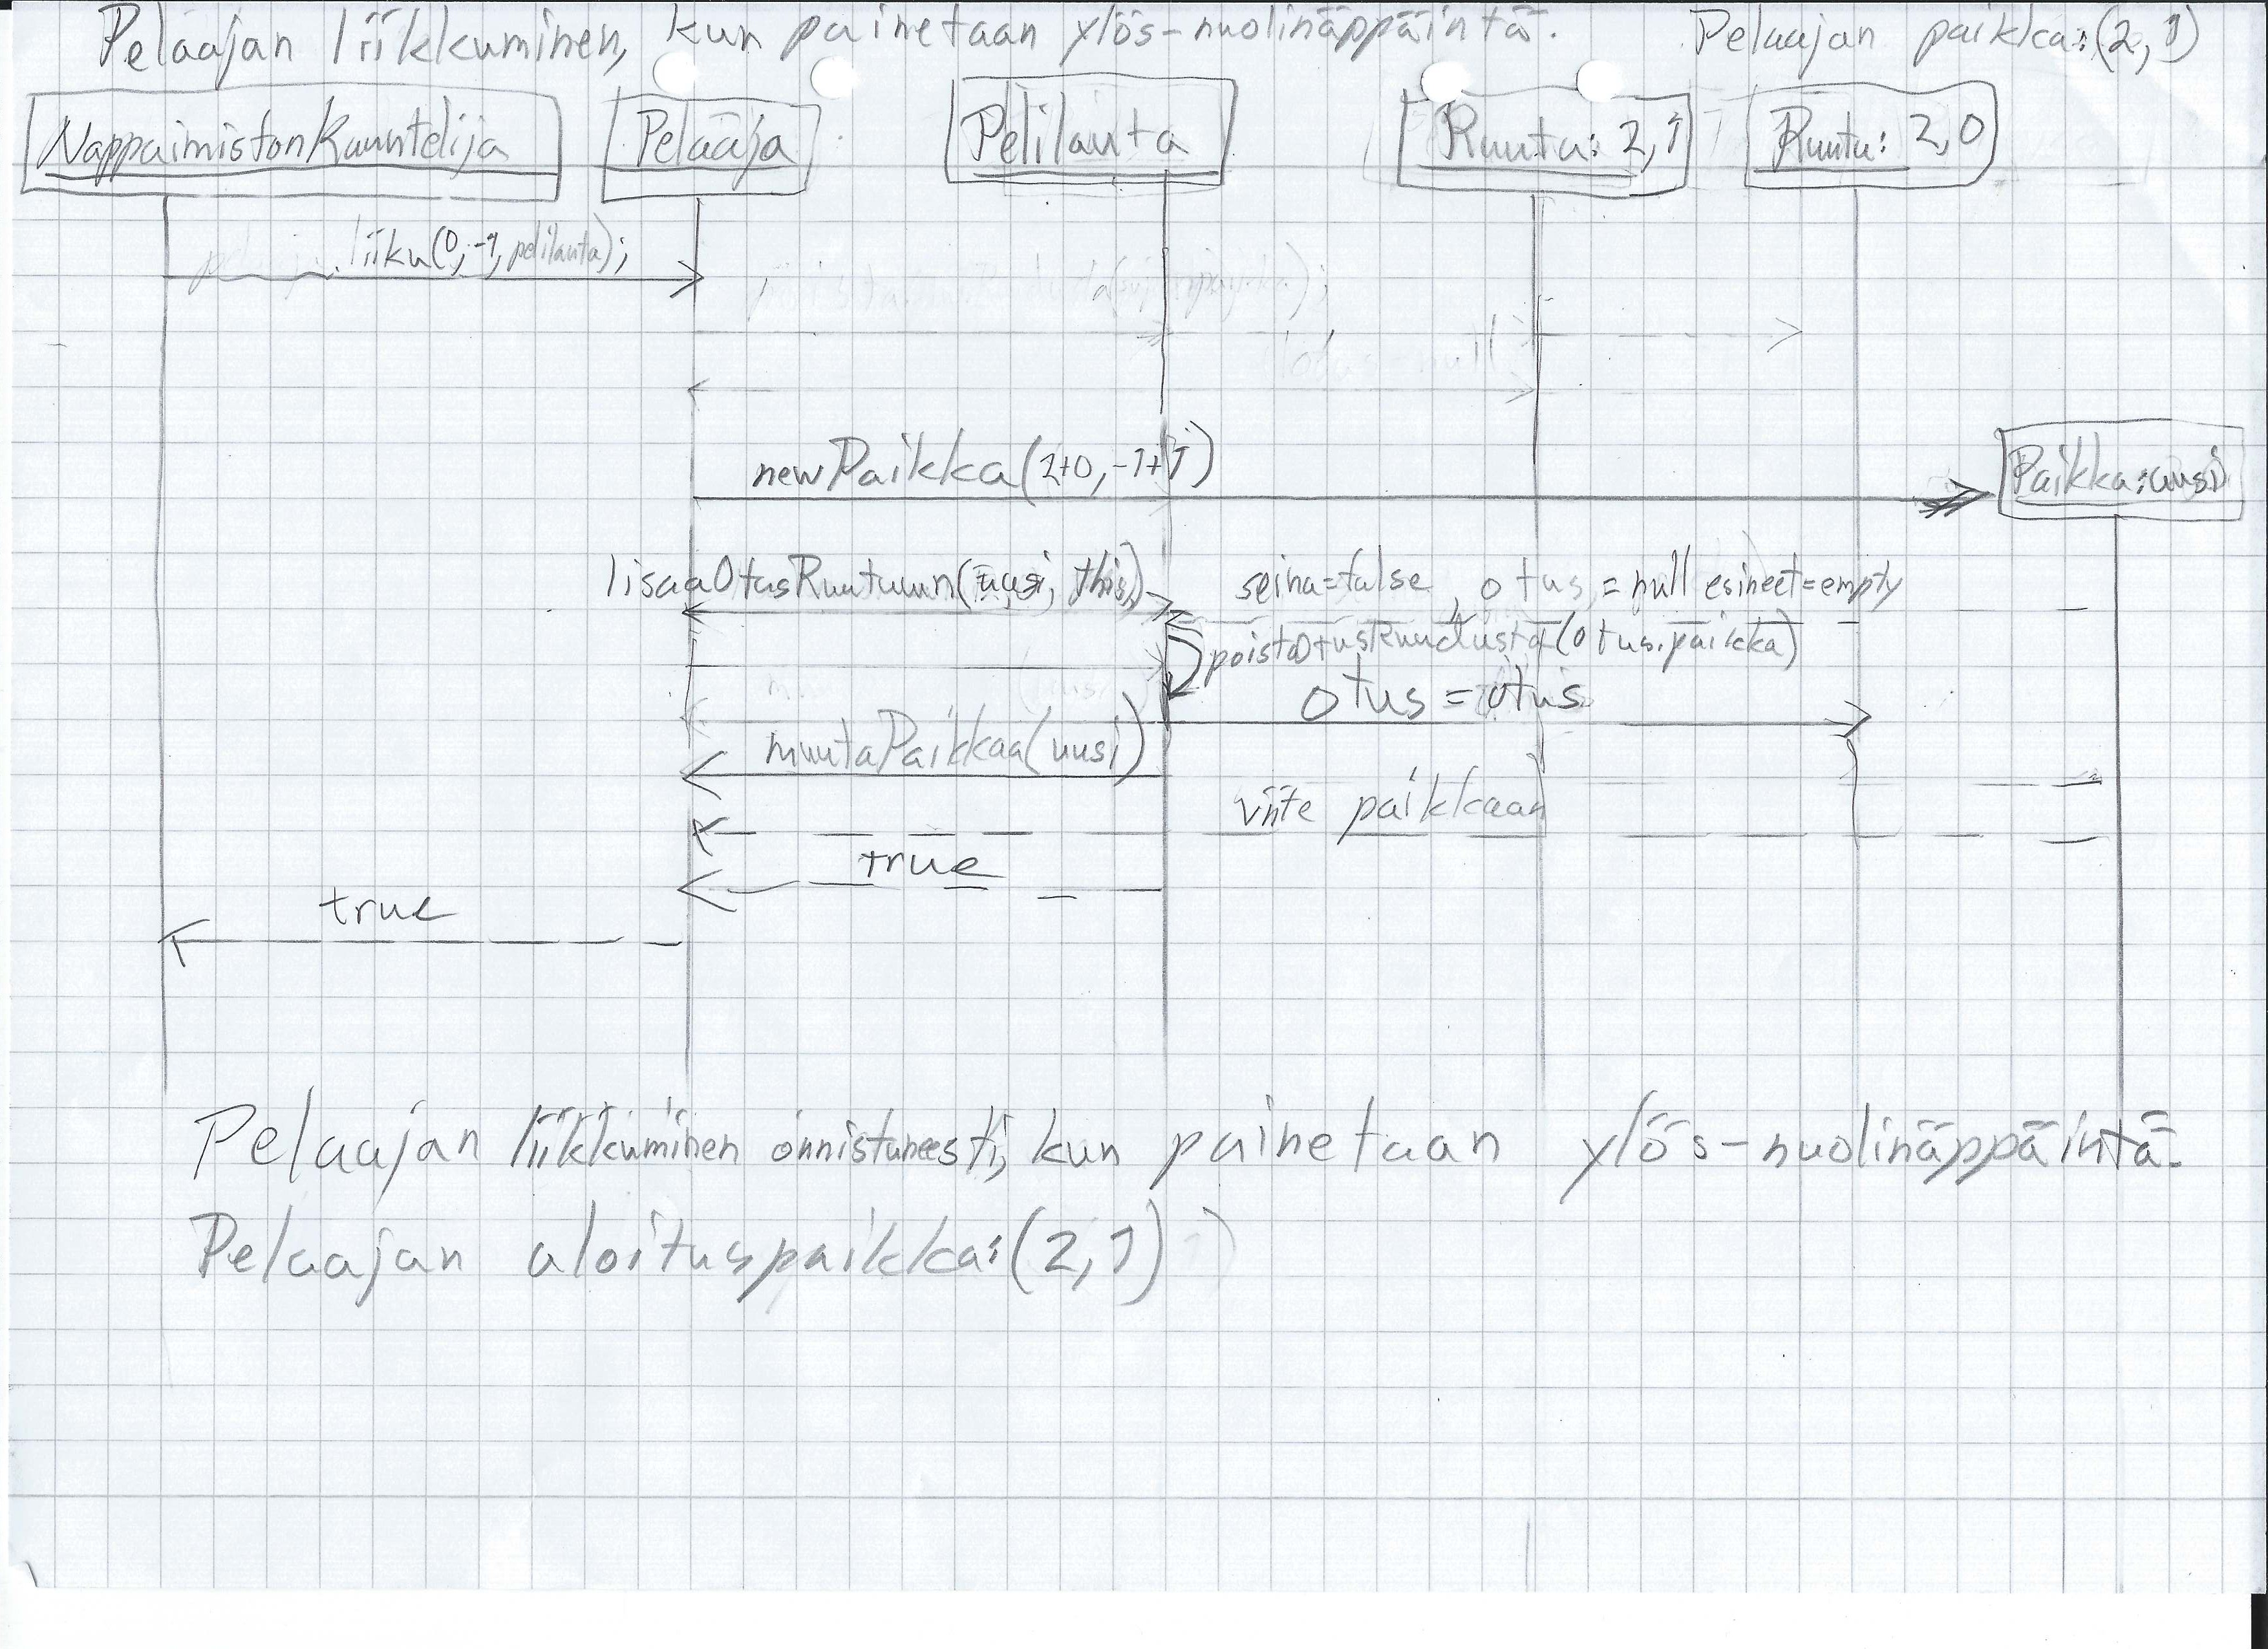 Pelaajan liikkuminen, kun painetaan ylös-nuolinäppäintä. Pelaajan paikka:(2,1)
NappaimistonKuuntelija Pelaaja Pelilauta Ruutu: 2,1 Ruutu: 2,0
.liiku(0,-1,pelilauta);
null
newPaikka(2+0,-1+1) Paikka:uusi
lisaaOtusRuutuun(uusi, this) seina=false, otus=null esineet=empty
poistaOtusRuudusta(otus.paikka)
otus=otus
muutaPaikkaa(uusi)
viite paikkaan
true
true
Pelaajan liikkuminen onnistuneesti, kun painetaan ylös-nuolinäppäintä.
Pelaajan aloituspaikka:(2,1)